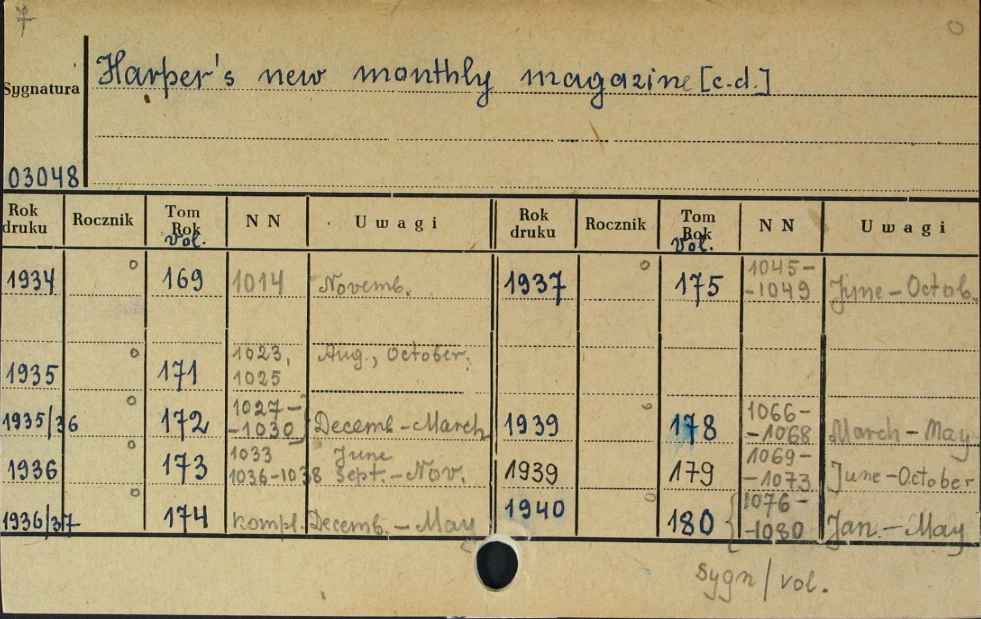 Sygnatura Harper's new monthly magazine [c.d.]
03048
Rok druku Rocznik Tom Rok vol. N N Uwagi Rok druku Rocznik Tom Rok vol. N N Uwagi
1934 169 1014 Novemb. 1937 175 1045-
-1049 June-Octob.
1935 171 1023,
1025 Aug., October.
1935/36 172 1027-
-1030 Decemb-March 1939 178 1066-
-1068 March-May
1936 173 1033 June
1036-1038 Sept.-Nov. 1939 179 1069-
-1073 June-October
1936/37 174 kompl. Decemb.-May 1940 180 1076-
-1080 Jan.-May
sygn/vol.